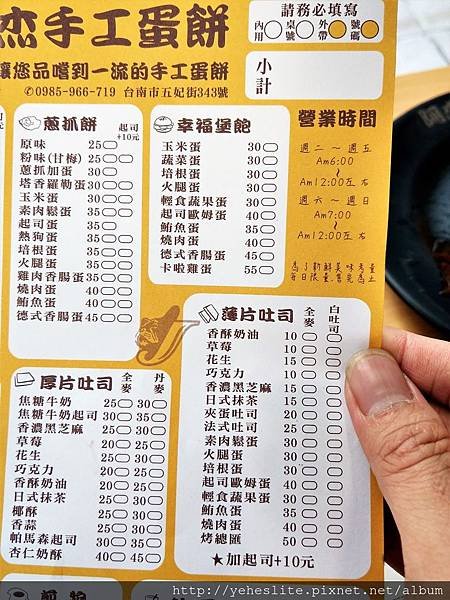 杰手工蛋餅
讓您品嚐到一流的手工蛋餅
✆0985-966-719 台南市五妃街343號
請務必填寫
內用 桌號 外帶 號碼
小計
蔥抓餅 起司+10元
原味 25
粉味(甘梅) 25
蔥抓加蛋 30
塔香羅勒蛋30
玉米蛋 30
素肉鬆蛋 35
起司蛋 35
熱狗蛋 35
培根蛋 35
火腿蛋 35
雞肉香腸蛋35
燒肉蛋 40
鮪魚蛋 40
德式香腸蛋45
幸福堡飽
玉米蛋 30
蔬菜蛋 30
培根蛋 30
火腿蛋 30
輕食蔬果蛋 30
起司歐姆蛋 30
鮪魚蛋 35
燒肉蛋 40
德式香腸蛋 40
卡啦雞蛋 55
營業時間
週二～週五
Am6:00
～
Am12:00左右
週六～週日
Am7:00
～
Am12:00左右
為了新鮮美味考量
每日限量.售完為止
厚片吐司 全麥 丹麥
焦糖牛奶 25 30
焦糖牛奶起司 30 35
香濃黑芝麻 25 30
草莓 20 25
花生 20 25
巧克力 20 25
香酥奶油 20 25
日式抹茶 25 30
椰酥 25 30
香蒜 25 30
帕馬森起司 30 35
杏仁奶酥 40 45
薄片吐司 全麥 白吐司
香酥奶油 10
草莓 10
花生 10
巧克力 10
香濃黑芝麻 15
日式抹茶 15
夾蛋吐司 20
法式吐司 25
素肉鬆蛋 30
火腿蛋 30
培根蛋 30
起司歐姆蛋 30
輕食蔬果蛋 30
鮪魚蛋 35
燒肉蛋 40
烤總匯 50
★加起司+10元
http://yeheslite.pixnet.net/album